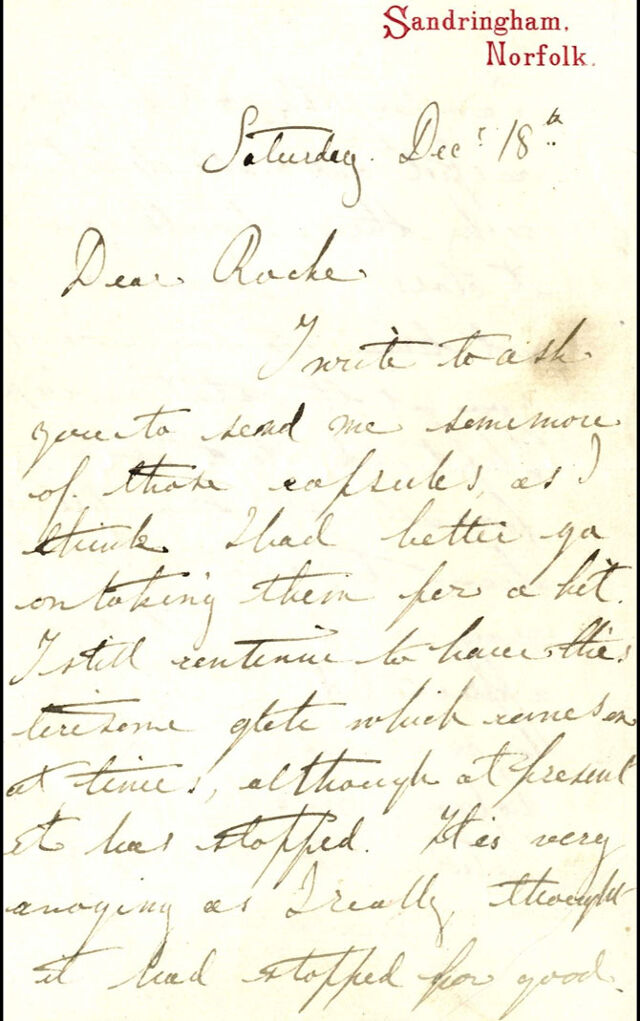 Sandringham,
Norfolk.
Saturday. Decr 18th
Dear Roche
I write to ask
you to send me some more
of those capsules, as I
think I had better go
on taking them for a bit.
I still continue to have this
tiresome glete which comes on
at times, although at present
it has stopped. It is very
anoying as I really thought
it had stopped for good.